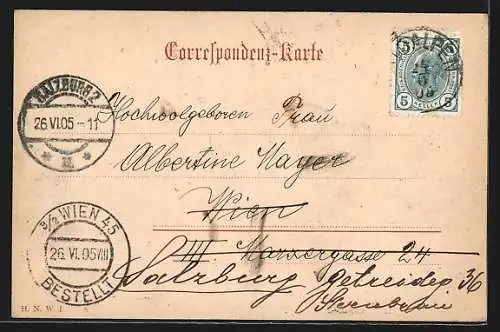 Correspondenz-Karte
SALZBURG 2
26 VI. 05 - 11
Hochwolgeboren Frau
Albertine Mayer
Wien
III Marxergasse 24
Salzburg Getreideg 36
Sternbräu
8/2 WIEN 45
26. VI. 05 VIII
BESTELLT
5 5
HELLER
H. N. W. I.